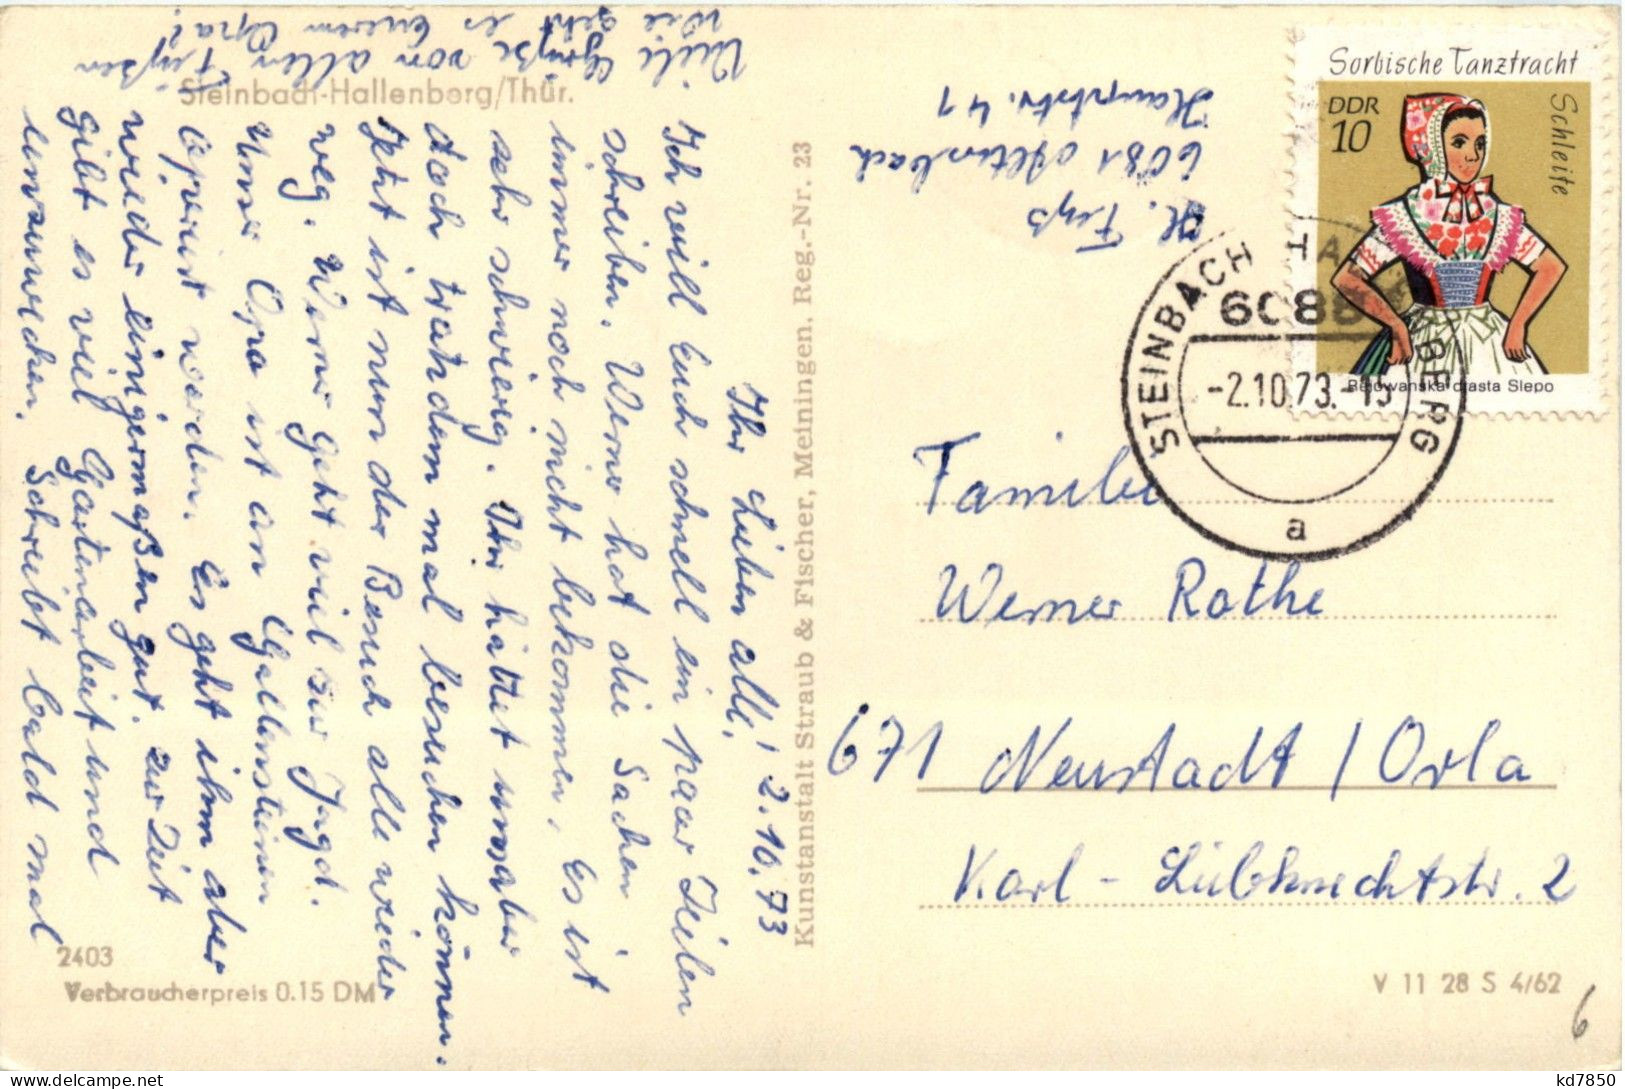 Steinbach-Hallenberg/Thür.
Ihr Lieben alle! 2.10.73
Ich will Euch schnell ein paar Zeilen
schreiben. Werner hat die Sachen
immer noch nicht bekommen. Es ist
sehr schwierig. Ihr hättet uns aber
doch trotzdem mal besuchen können.
Jetzt ist nun der Besuch alle wieder
weg. Werner geht viel zur Jagd.
Unser Opa ist an Gallensteinen
operiert worden. Es geht ihm aber
wieder einigermaßen gut. Zur Zeit
gibt es viel Gartenarbeit und
einzuwecken. Schreibt bald mal
Wie geht es Eurem Opa?
Viele Grüße von allen
2403
Verbraucherpreis 0.15 DM
Kunstanstalt Straub & Fischer, Meiningen. Reg.-Nr. 23
6081 Altersbach
Hauptstr. 41
Sorbische Tanztracht
Schleife
DDR
10
Rejowanska drasta Slepo
STEINBACH-HALLENBERG
6088
-2.10.73.-15
a
Familie
Werner Rothe
671 Neustadt / Orla
Karl-Liebknechtstr. 2
V 11 28 S 4/62
6
kd7850